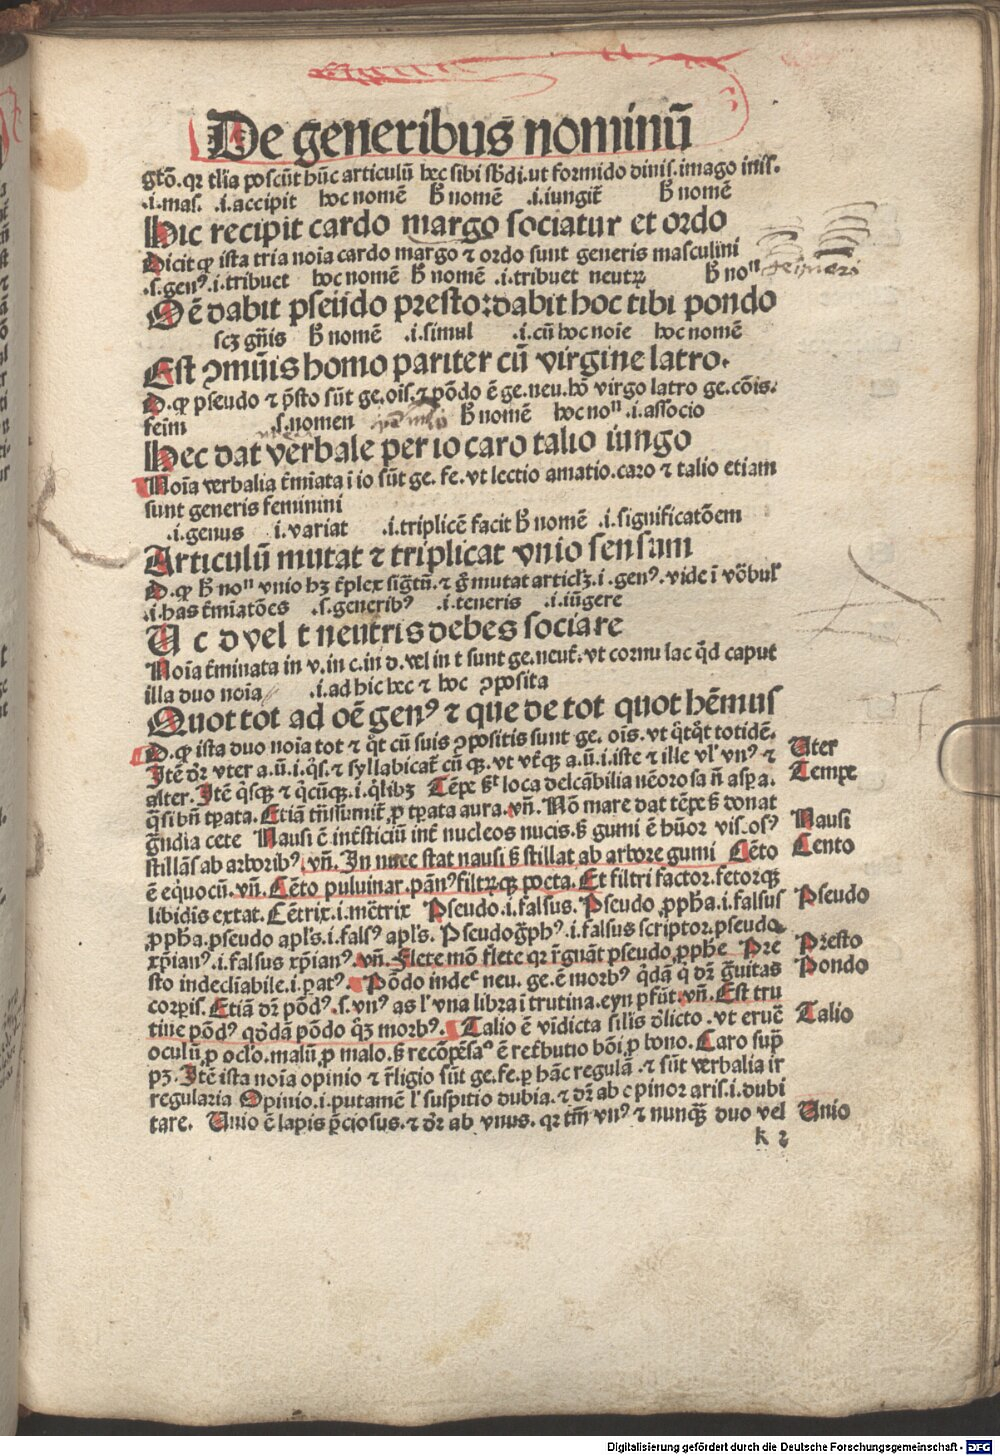 De generibus nominū
gtõ. qr tłia poscūt hūc articulū hec sibi sbđi. ut formido dinis. imago inis.
.i. mas. .i. accipit hoc nomē hͦ nomē .i. iungit̄ hͦ nomē
Hic recipit cardo margo sociatur et ordo
Dicit ꝙ ista tria noīa cardo margo ⁊ ordo sunt generis masculini
.s. genꝰ. .i. tribuet hoc nomē hͦ nomē .i. tribuet neutrꝝ hͦ noⁿ
Oē dabit pseudo presto: dabit hoc tibi pondo
scꝫ gn̄is hͦ nomē .i. simul .i. cū hoc noīe hoc nomē
Est ꝯmūis homo pariter cū virgine latro.
D. ꝙ pseudo ⁊ p̄sto sūt ge. oīs. ⁊ pōdo ē ge. neu. hō virgo latro ge. cōis.
feim .s. nomen hͦ nomē hoc noⁿ .i. associo
Hec dat verbale per io caro talio iungo
Noīa verbalia t̄miata i io sūt ge. fe. vt lectio amatio. caro ⁊ talio etiam
sunt generis feminini
.i. genus .i. variat .i. triplicē facit hͦ nomē .i. significatōem
Articulū mutat ⁊ triplicat vnio sensum
D. ꝙ hͦ noⁿ vnio hꝫ t̄plex siḡtū. ⁊ g̊ mutat articlꝫ. i. genꝰ. vide ī vōbul̓
.i. has t̄miatōes .s. generibꝰ .i. teneris .i. iūgere
U c d vel t neutris debes sociare
Noīa t̄minata in v. in c. in d. vel in t sunt ge. neut̄. vt cornu lac qd̄ caput
illa duo noīa .i. ad hic hec ⁊ hoc ꝯposita
Quot tot ad oē genꝰ ⁊ que de tot quot hēmus
D. ꝙ ista duo noīa tot ⁊ q̊t cū suis ꝯpositis sunt ge. oīs. vt q̊tq̊t totidē.
Itē dr̄ vter a. ū. i. q̊s. ⁊ syllabicat̄ cū qꝫ. vt vt̄qꝫ a. ū. i. iste ⁊ ille vl̓ vnꝰ ⁊
Uter
alter. Itē q̊sqꝫ ⁊ q̊cūqꝫ. i. q̊libꝫ Tēpe st̄ loca delcābilia nēorosa n̄ aspa.
Tempe
q̄ sibn̄ tꝑata. Etiā tn̄ssumit̄ ꝓ tꝑata aura. vn̄. Nō mare dat tēpe sꝫ donat
grādia cete Nausi ē int̄sticiū int̄ nucleos nucis. sꝫ gumi ē hūor vis. osꝰ
Nausi
stillās ab arboribꝰ. vn̄. In nuce stat nausi sꝫ stillat ab arbore gumi Cēto
Cento
ē equocū. vn̄. Cēto puluinar. pānꝰ filtrꝝqꝫ poeta. Et filtri factor. fetorqꝫ
libidīs extat. Cētrix. i. mēt̄rix Pseudo. i. falsus. Pseudo ꝓpha. i. falsus
Pseudo
ꝓpha. pseudo apl̓s. i. falsꝰ apl̓s. Pseudogr̄phꝰ. i. falsus scriptor. pseudo
xp̄ianꝰ. i. falsus xp̄ianꝰ. vn̄. Flete mō flete qr r̄gnāt pseudo ꝓphe Pre
Presto
sto indeclīabile. i. ꝑatꝰ. Pōdo indeᶜ neu. ge. ē morbꝰ q̊dā q̊ dr̄ gr̄uitas
Pondo
corpis. Etiā dr̄ pōdꝰ. s. vnꝰ as l̓ vna libra i trutina. eyn pfūt. vn̄. Est tru
tine pōdꝰ qd̄dā pōdo q̊ꝫ morbꝰ. Talio ē vīdicta silīs d̓licto. vt eruē
Talio
oculū ꝓ oclo. malū ꝓ malo. sꝫ recōpēsaᵒ ē ret̄butio bōi ꝓ bono. Caro sup̄
pꝫ. Itē ista noīa opinio ⁊ r̄ligio sūt ge. fe. ꝑ hāc regulā. ⁊ sūt verbalia ir
regularia Opinio. i. putamē l̓ suspitio dubia. ⁊ dr̄ ab c pinor aris. i. dubi
tare. Unio ē lapis p̄ciosus. ⁊ dr̄ ab vnus. qr tm̄ vnꝰ ⁊ nunqꝫ duo vel
Unio
k 2
Digitalisierung gefördert durch die Deutsche Forschungsgemeinschaft - DFG